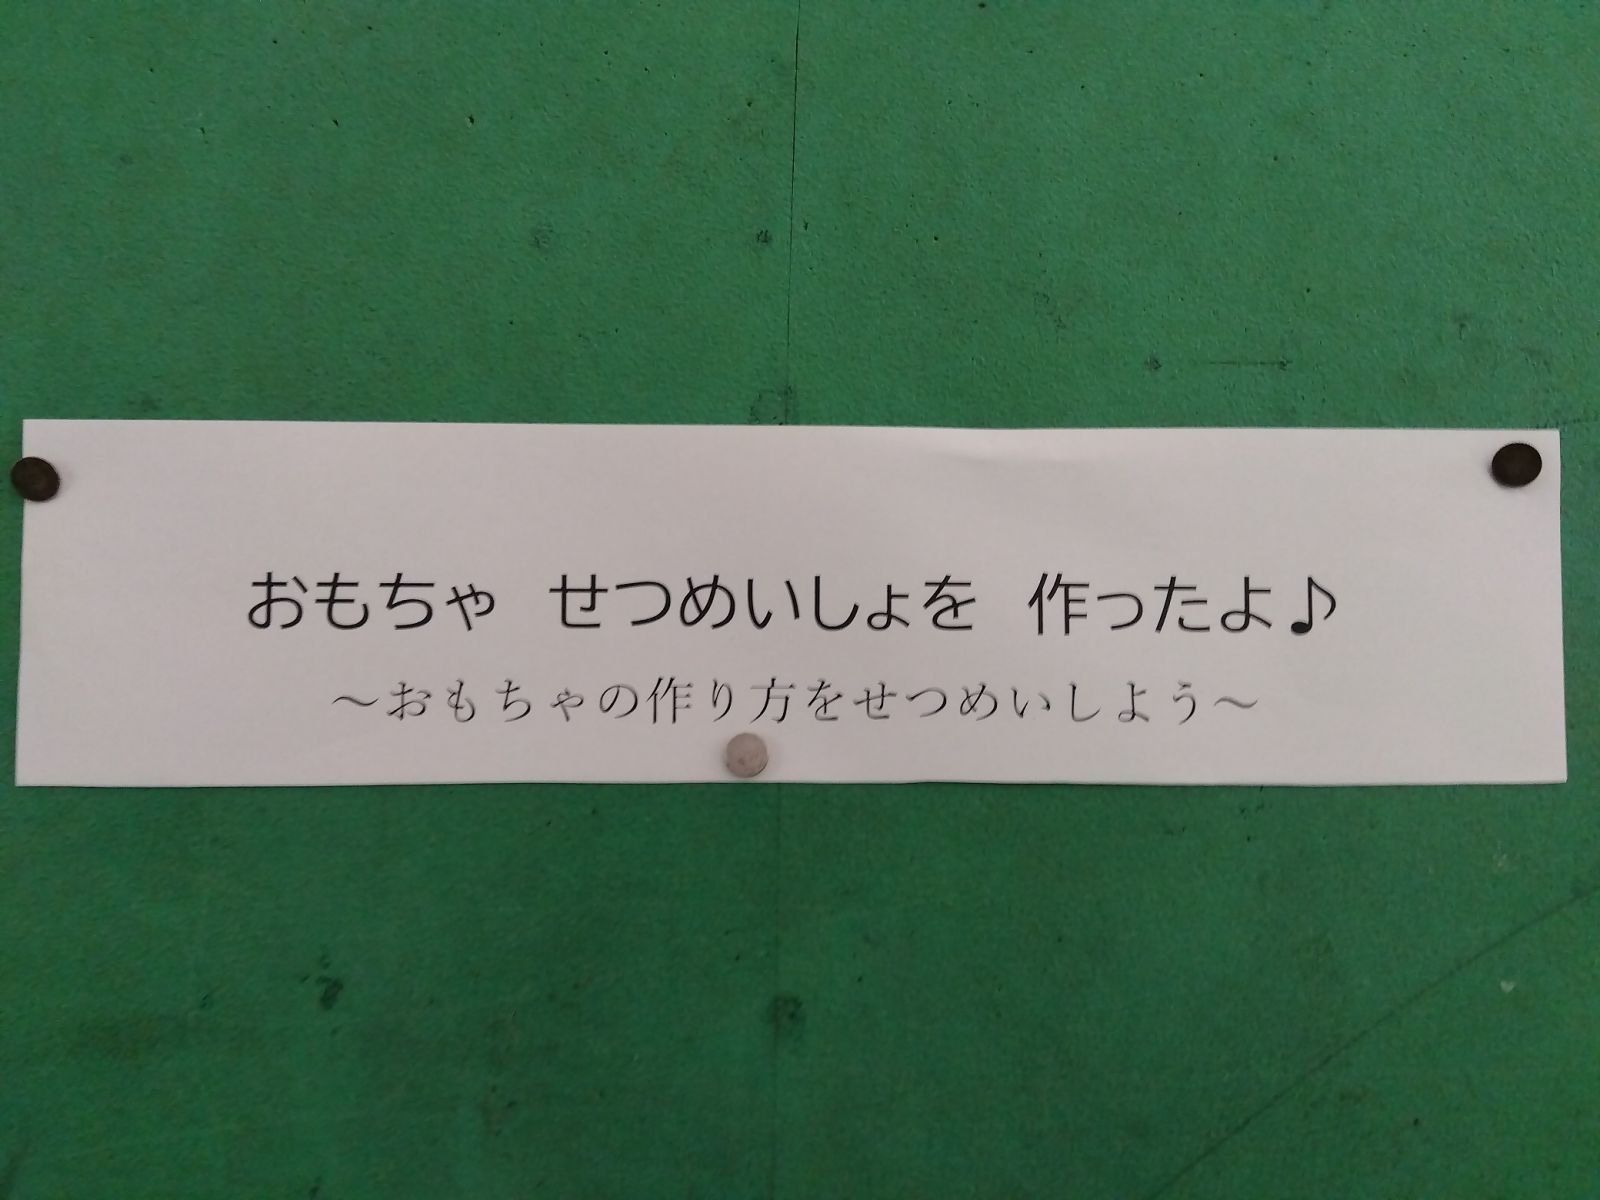 おもちゃ　せつめいしょを　作ったよ♪
～おもちゃの作り方をせつめいしよう～